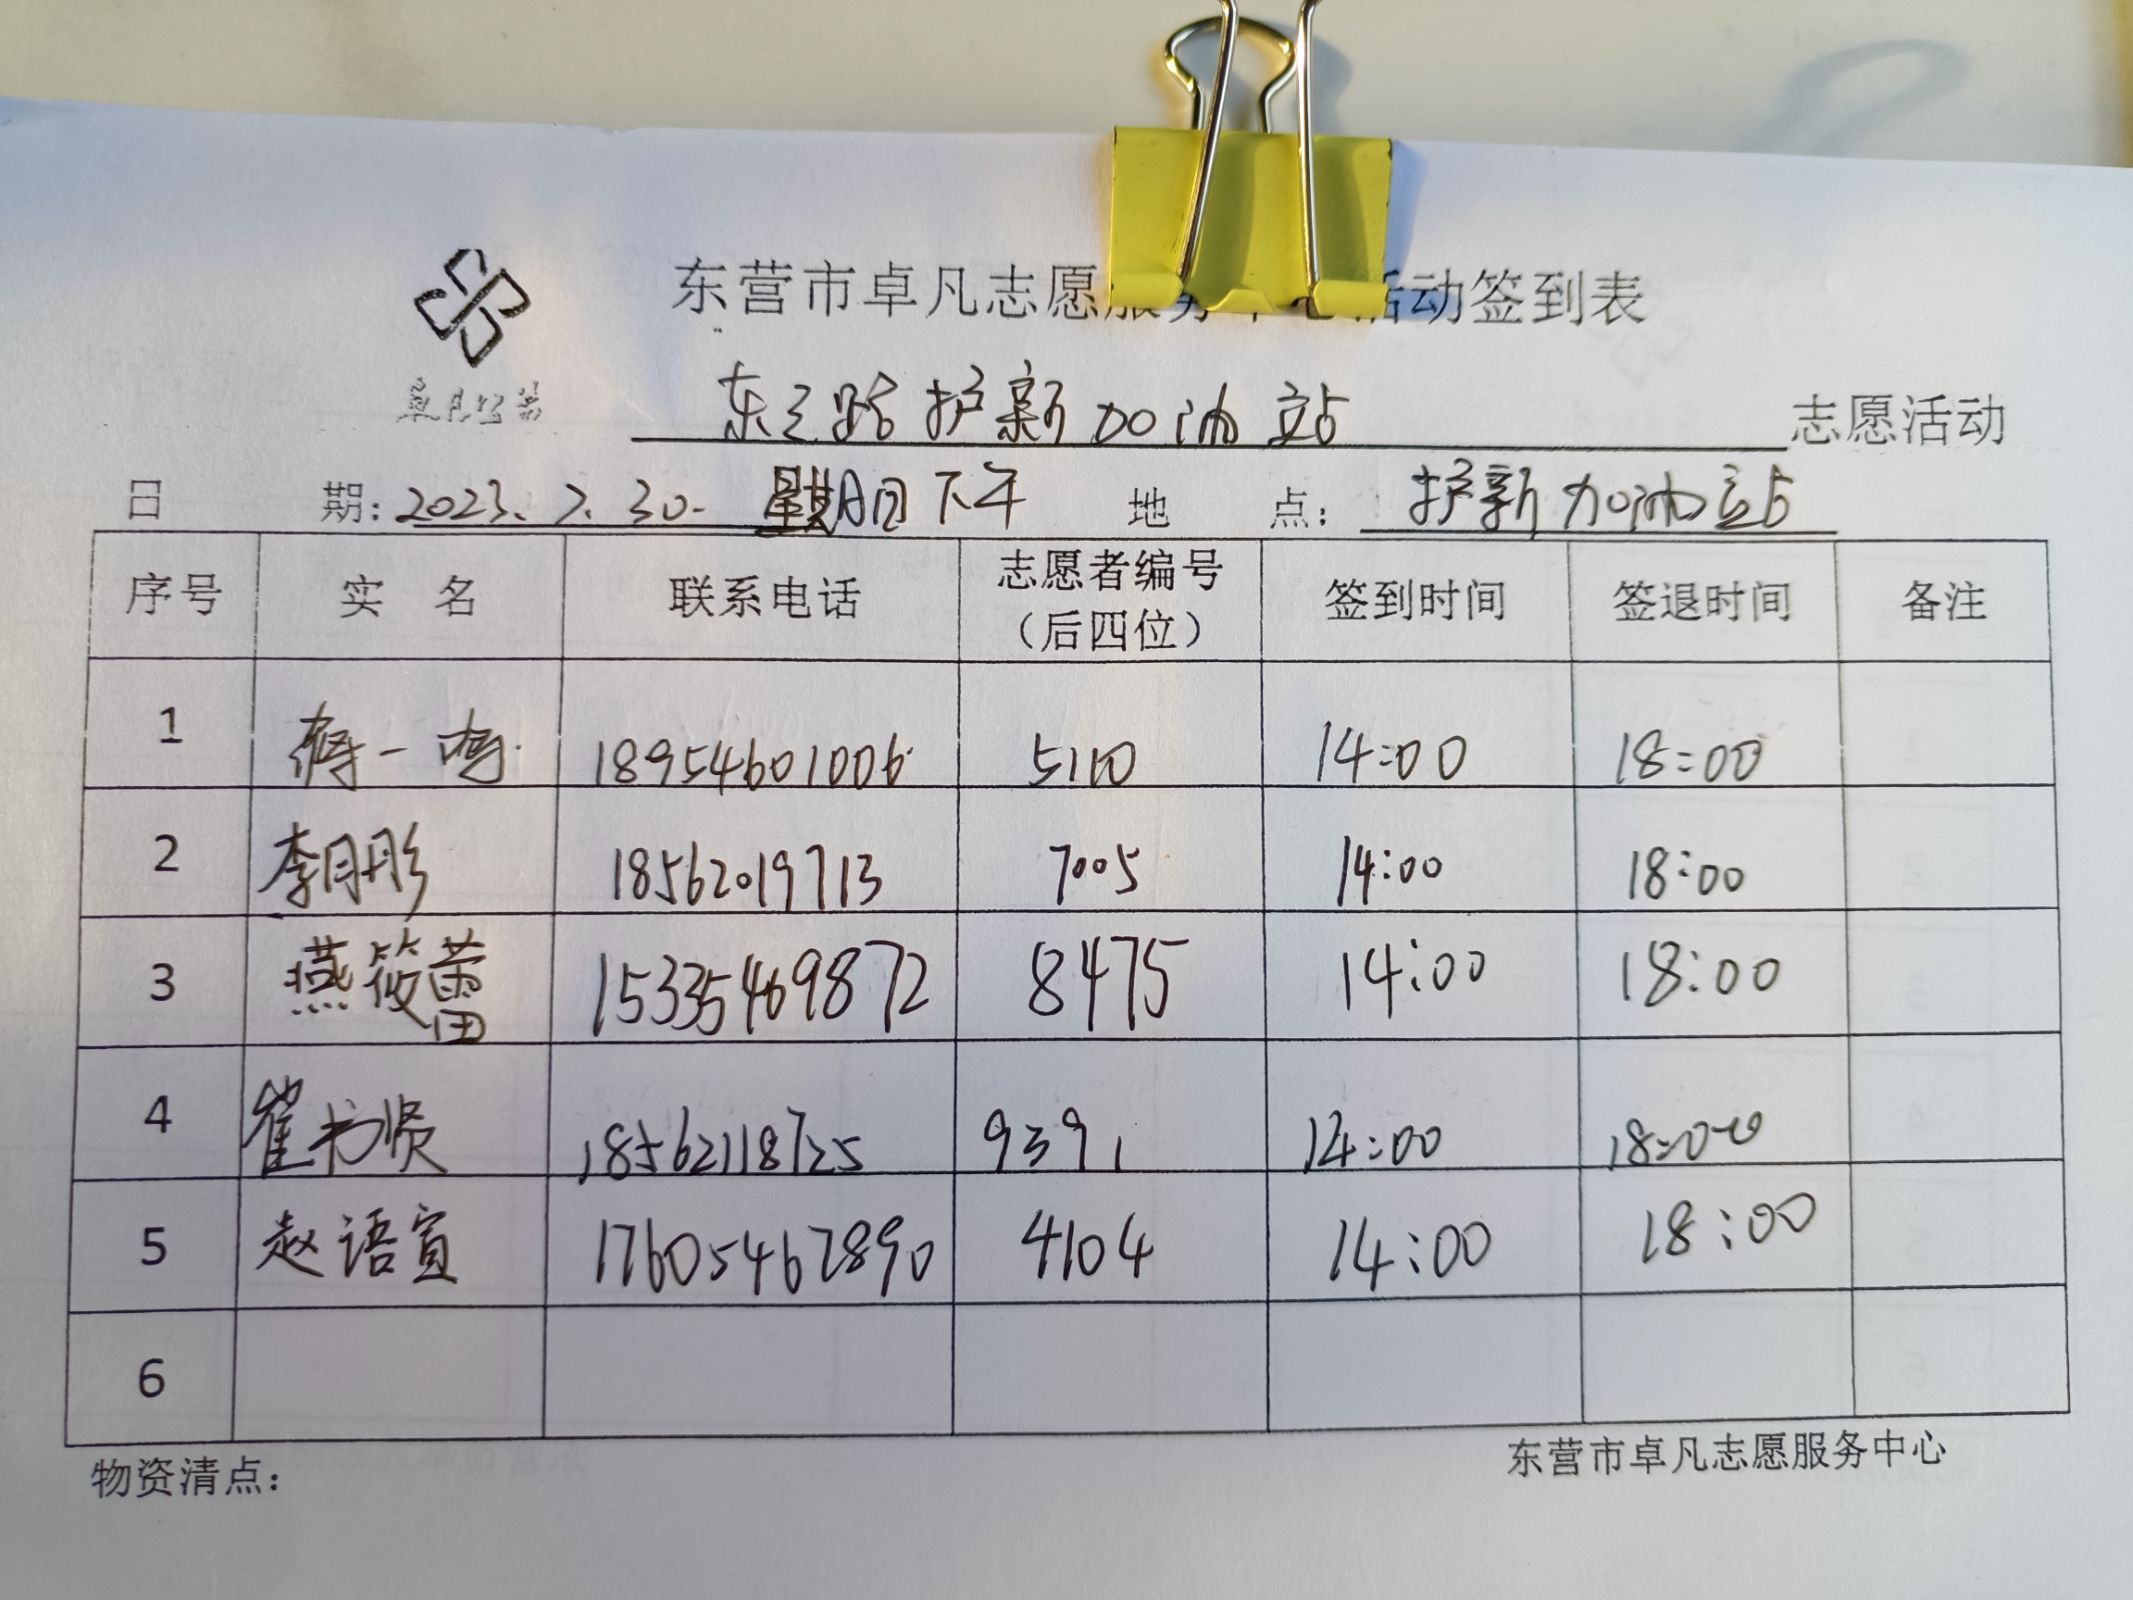 东营市卓凡志愿服务中心活动签到表
卓凡公益
东三路护新加油站 志愿活动
日 期: 2023.7.30. 星期日下午 地 点: 护新加油站
序号 实 名 联系电话 志愿者编号（后四位） 签到时间 签退时间 备注
1 一鸣 18954601006 5110 14:00 18:00
2 李月彤 18562019713 7005 14:00 18:00
3 燕筱蕾 15335469872 8475 14:00 18:00
4 崔书贤 18562118725 9391 14:00 18:00
5 赵语宣 17605467890 4104 14:00 18:00
6
物资清点: 东营市卓凡志愿服务中心